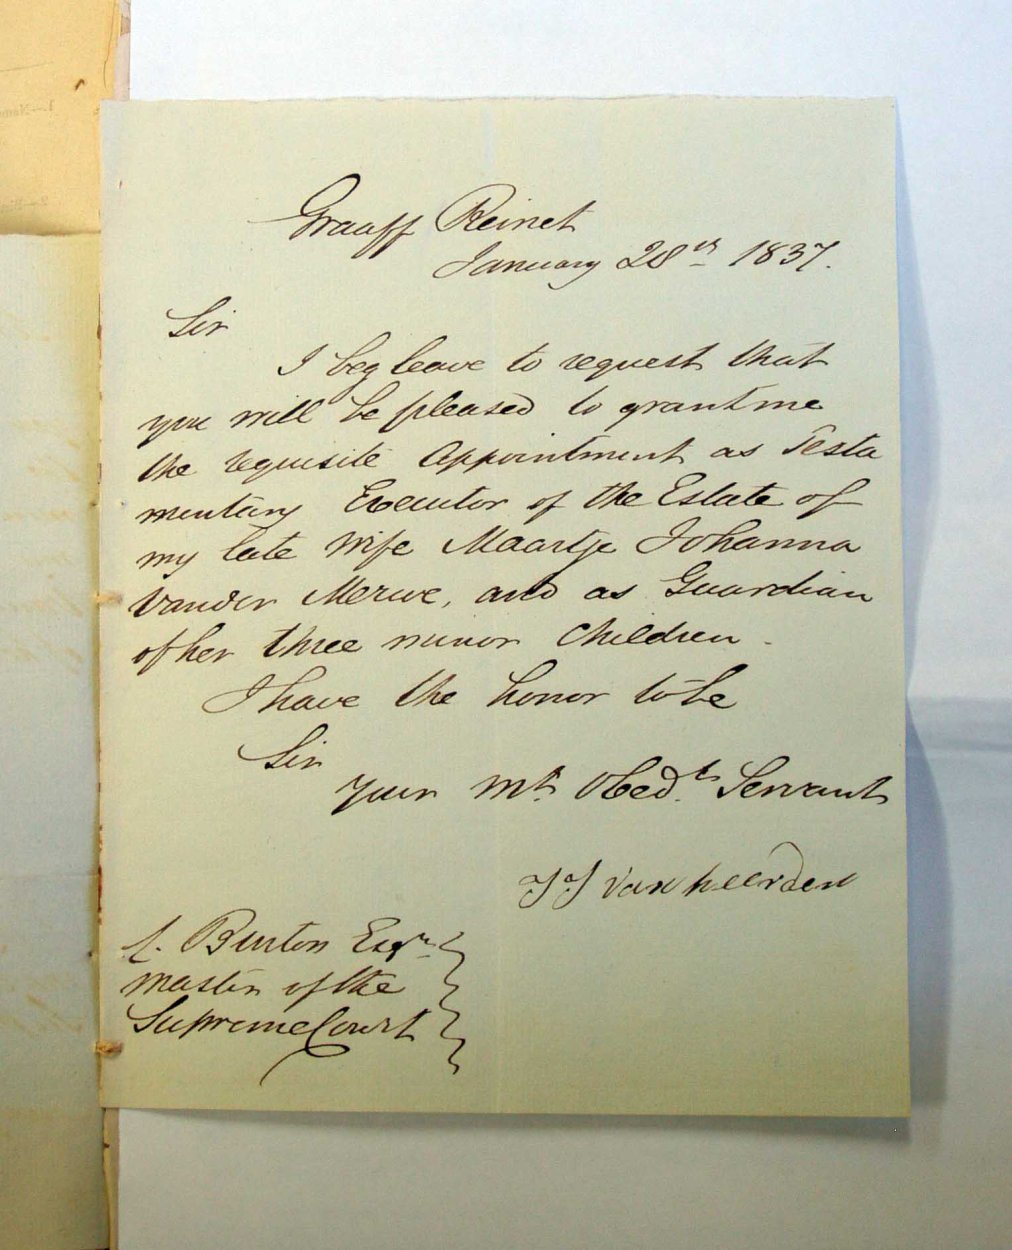 Graaff Reinet
January 28th 1837.
Sir
I beg leave to request that
you will be pleased to grant me
the requisite Appointment as Testa
mentary Executor of the Estate of
my late Wife Maartje Johanna
Vander Merwe, and as Guardian
of her three minor Children.
I have the honor to be
Sir
Your Mt. Obedt. Servant
JJ Van heerden
Burton Esqre
Master of the
Supreme Court